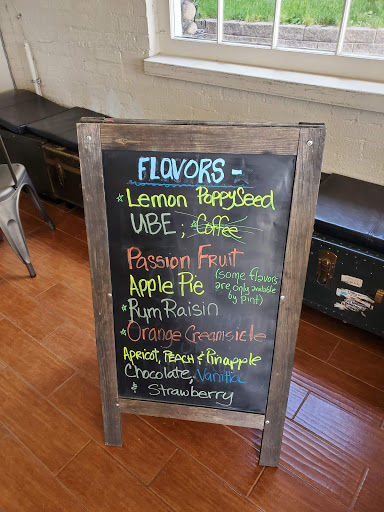 FLAVORS -
☆Lemon PoppySeed
UBE; ☆Coffee
Passion Fruit
Apple Pie (some flavors are only available by pint)
☆Rum Raisin
☆Orange Creamsicle
Apricot, Peach & Pineapple
Chocolate, Vanilla
& Strawberry